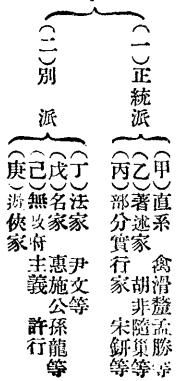 （一）正統派
（甲）直系　禽滑釐孟勝等
（乙）著述家　胡非隨巢等
（丙）部分實行家　宋鈃等
（二）別派
（丁）法家　尹文等
（戊）名家　惠施公孫龍等
（己）無政府主義　許行
（庚）游俠家